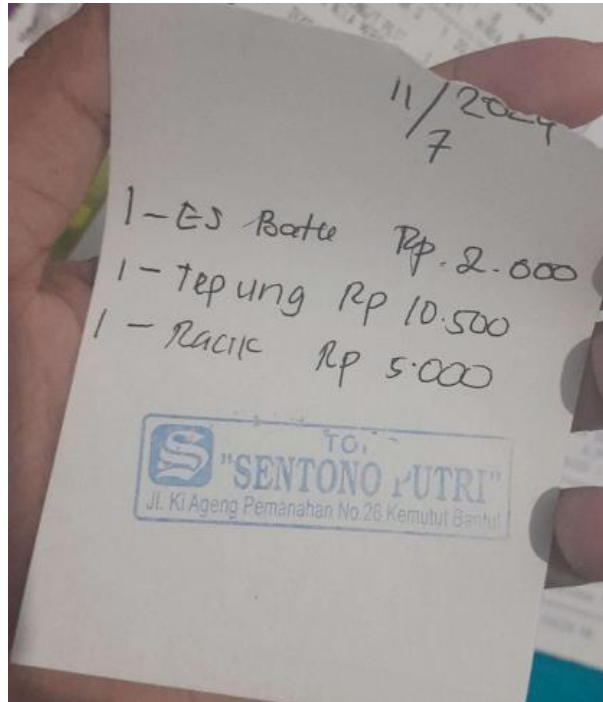 11/2024
7
1 - ES Batu Rp. 2.000
1 - Tepung Rp 10.500
1 - Racik Rp 5.000
TO.
"SENTONO PUTRI"
Jl. Ki Ageng Pemanahan No.26 Kemutut Bantul